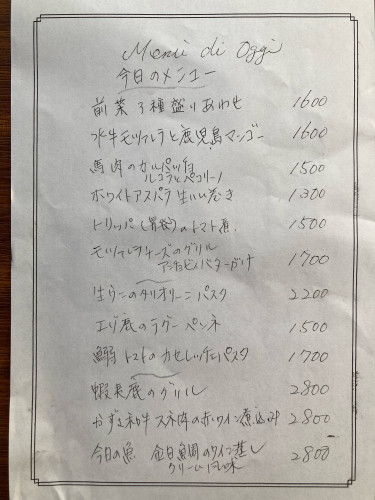 Menù di Oggi
今日のメニュー
前菜3種盛りあわせ 1600
水牛モッツァレラと鹿児島マンゴー 1600
馬肉のカルパッチョ 1500
ルコラとペコリーノ
ホワイトアスパラ 生ハム巻き 1300
トリッパ(胃袋)のトマト煮 1500
モッツァレラチーズのグリル
アンチョビバターがけ 1700
生うにのタリオリーニ パスタ 2200
エゾ鹿のラグー ペンネ 1500
鰯 トマトのカセレッチェパスタ 1700
蝦夷鹿のグリル 2800
かずさ和牛 スネ肉の赤ワイン煮込み 2800
今日の魚 金目鯛のワイン蒸し
クリーム風味 2800